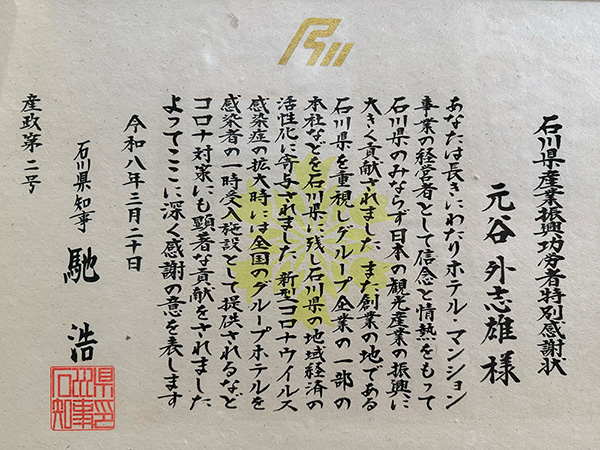 石川県産業振興功労者特別感謝状
元谷 外志雄 様
あなたは長きにわたりホテル・マンション
事業の経営者として信念と情熱をもって
石川県のみならず日本の観光産業の振興に
大きく貢献されました また創業の地である
石川県を重視しグループ企業の一部の
本社などを石川県に残し石川県の地域経済の
活性化に寄与されました 新型コロナウイルス
感染症の拡大時には全国のグループホテルを
感染者の一時受入施設として提供されるなど
コロナ対策にも顕著な貢献をされました
よってここに深く感謝の意を表します
令和八年三月二十日
石川県知事 馳 浩
石川県知事印
産政第二号